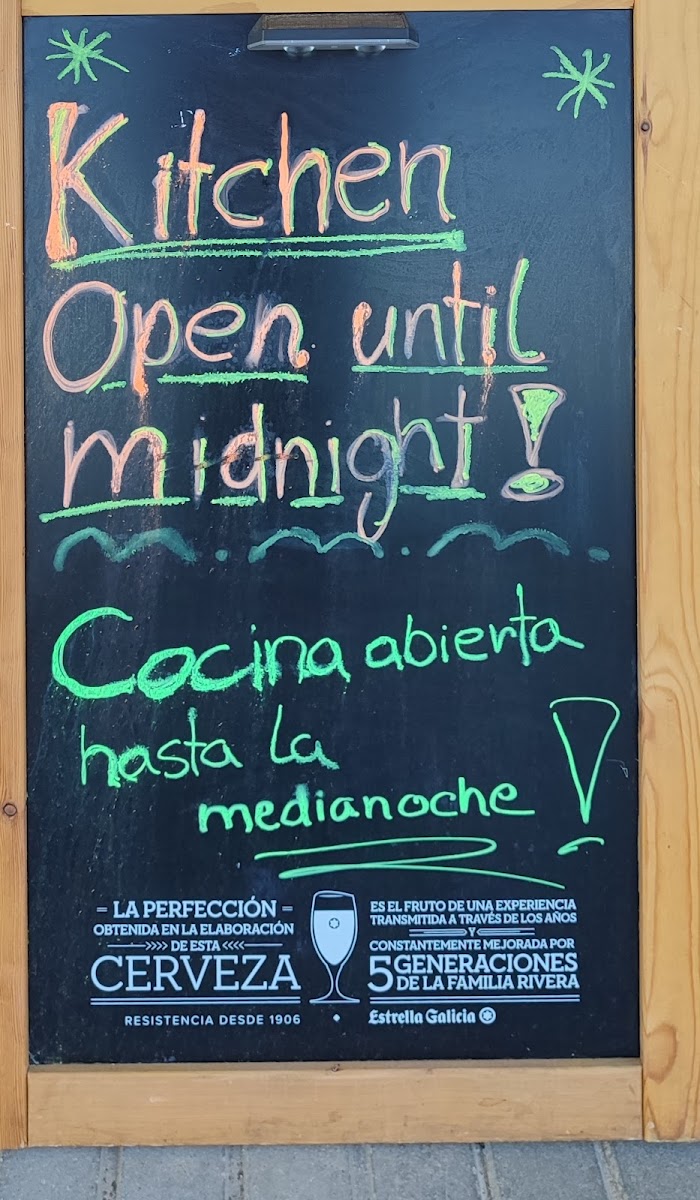 Kitchen
Open until
midnight!
Cocina abierta
hasta la
medianoche!
LA PERFECCIÓN
OBTENIDA EN LA ELABORACIÓN
DE ESTA
CERVEZA
RESISTENCIA DESDE 1906
ES EL FRUTO DE UNA EXPERIENCIA
TRANSMITIDA A TRAVÉS DE LOS AÑOS
Y
CONSTANTEMENTE MEJORADA POR
5 GENERACIONES
DE LA FAMILIA RIVERA
Estrella Galicia